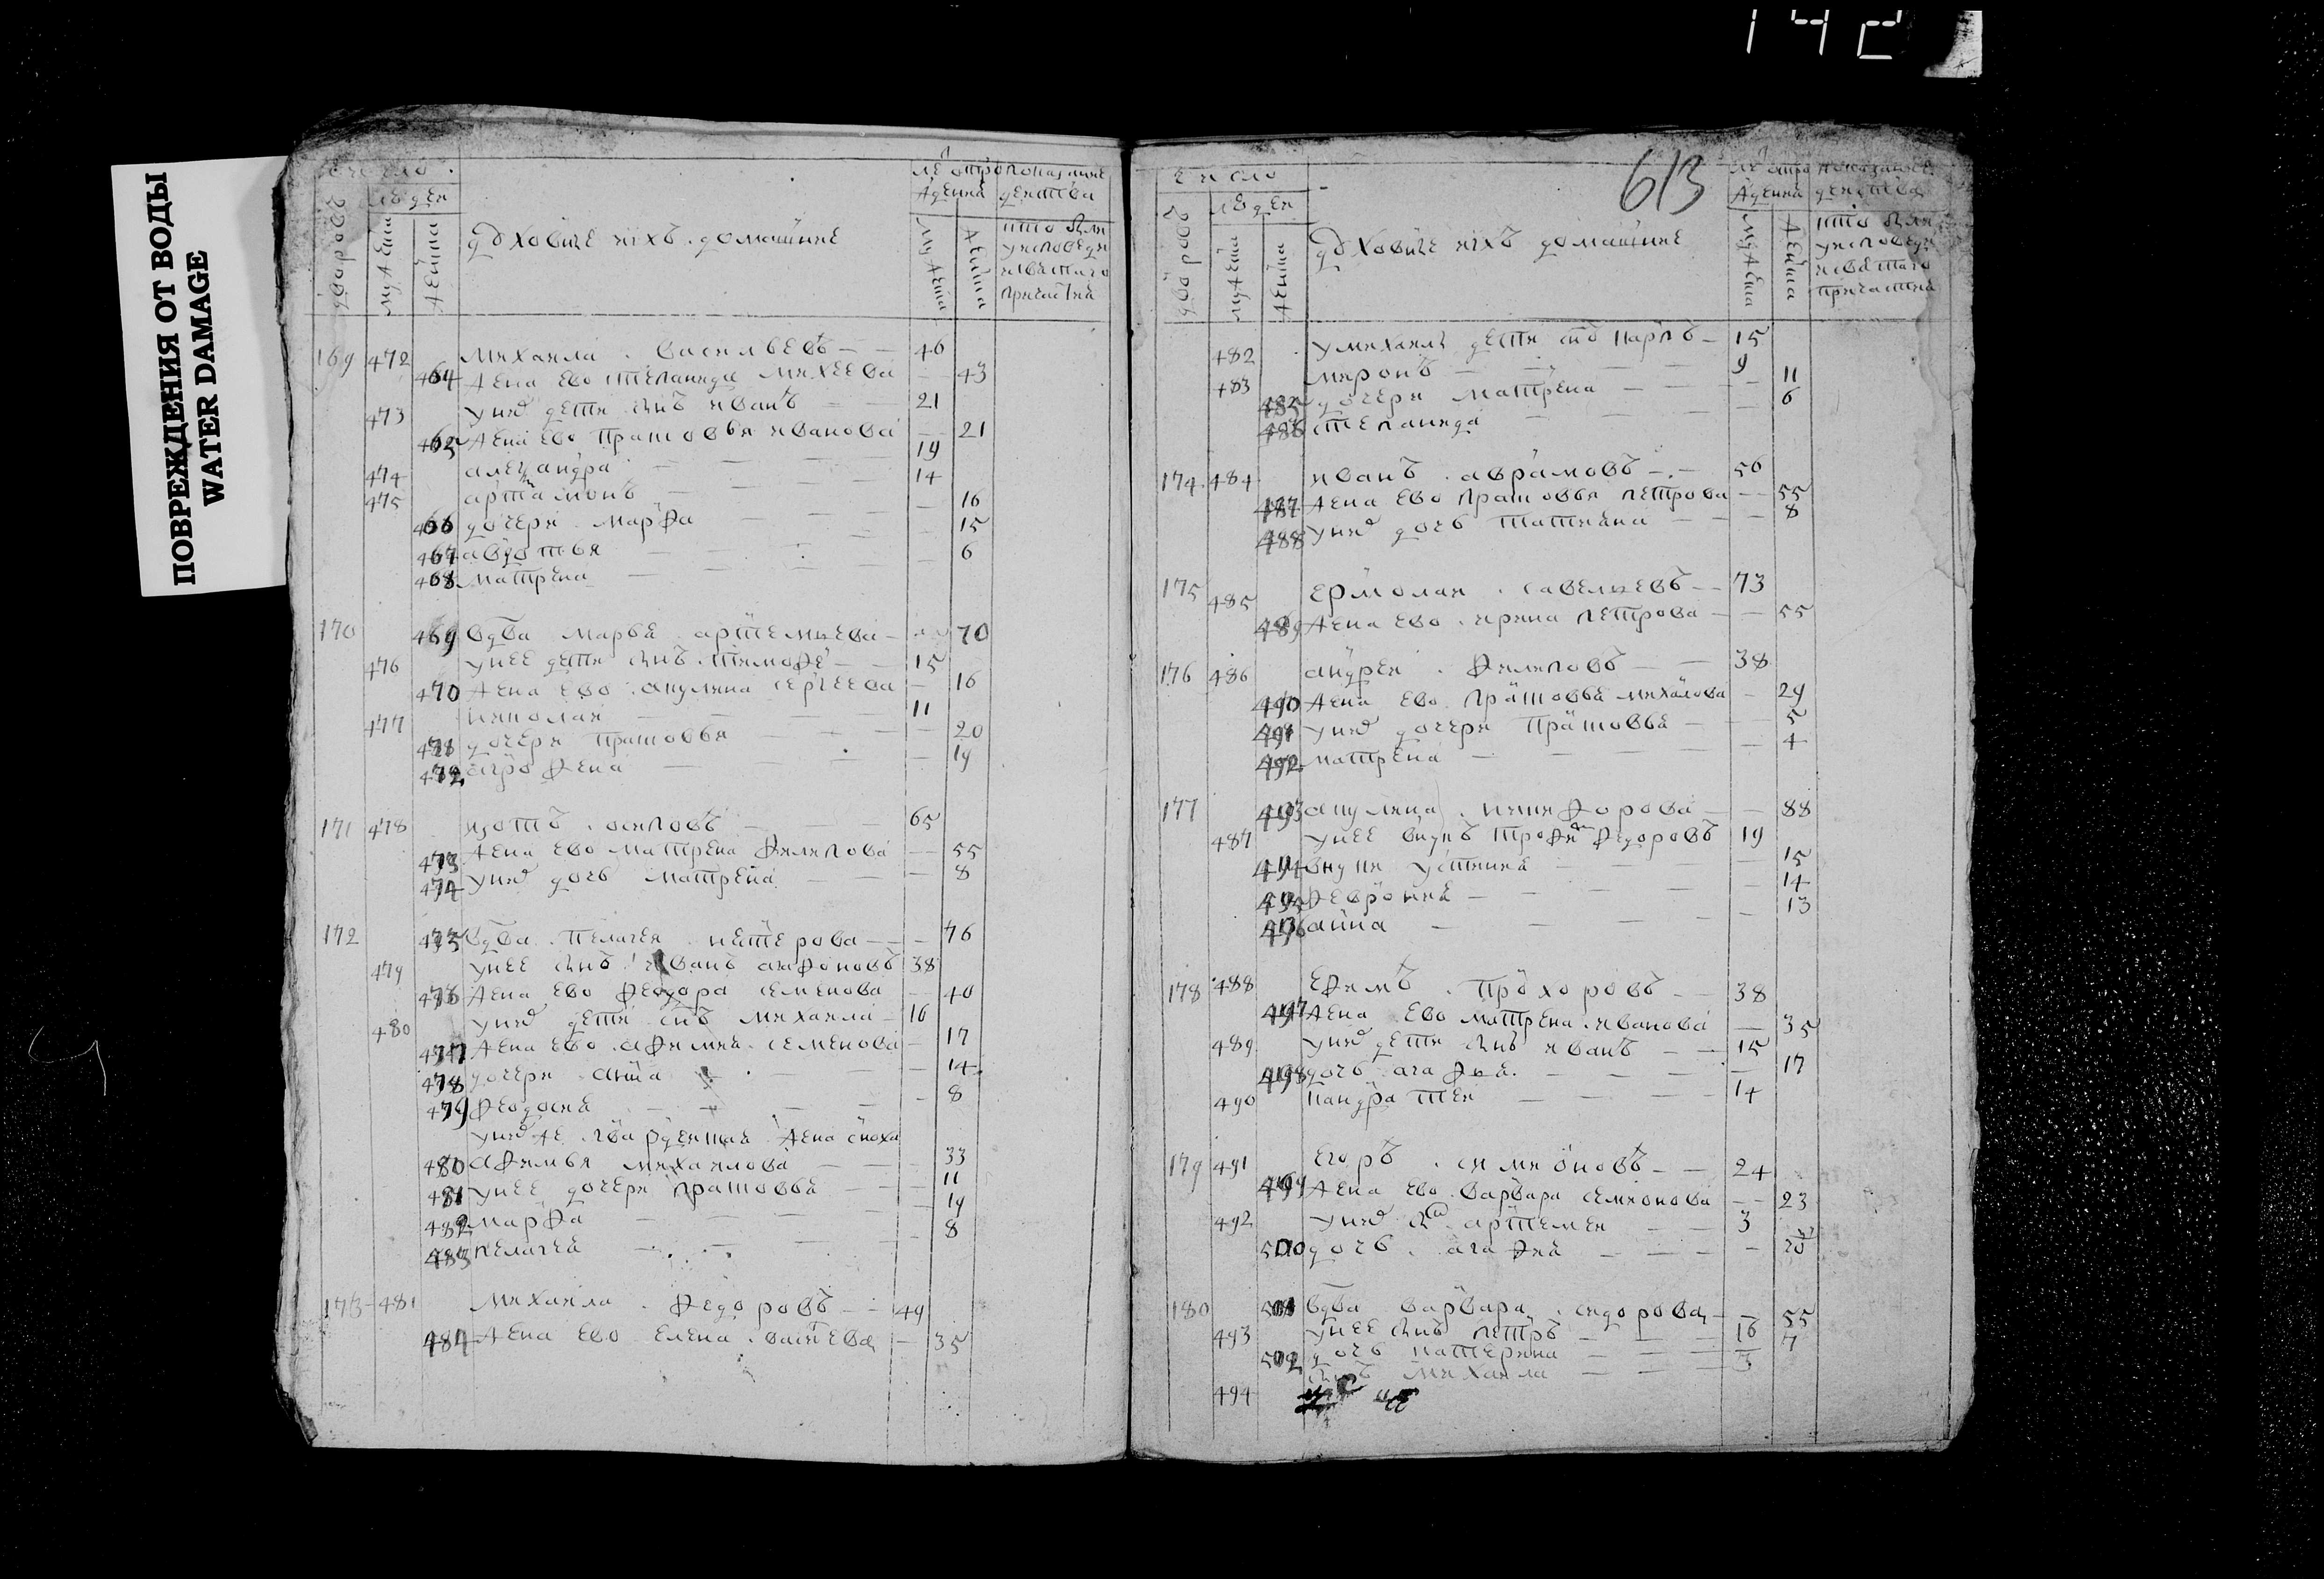 142
ПОВРЕЖДЕНИЯ ОТ ВОДЫ
WATER DAMAGE
число
людеи
дворовъ
мужеска
женска
духовные ихъ домашние
мужеска
женска
кто был
у исповеди
и святаго
причастия
169 472 михаила васильевъ 46
464 жена ево степанида михеева 43
473 у них дети сынъ иванъ 21
465 жена ево прасковья иванова 21
474 александра 19
475 артамонъ 14
466 дочери марѳа 16
467 авдотья 15
468 матрена 6
170 469 вдва марья артемьева 70
476 у нее дети снъ тимоѳе 15
470 жена ево акулина сергеева 16
477 николаи 11
471 дочери прасковья 20
472 агроѳена 19
171 478 изотъ осиповъ 65
473 жена ево матрена ѳилипова 55
474 у них дочь матрена 8
172 475 вдва пелагея нестерова 76
479 у нее снъ иванъ агаѳоновъ 38
476 жена ево ѳедора семенова 40
480 у них дети снъ михаила 16
477 жена ево аѳимия семенова 17
478 дочери анна 14
479 ѳеодосия 8
у них же гвардейская жена сноха
480 аѳимья михаилова 33
481 у нее дочери прасковья 11
482 марѳа 19
483 пелагея 8
173 481 михаила ѳедоровъ 49
484 жена ево елена васильева 35
613
число
людеи
дворовъ
мужеска
женска
духовные ихъ домашние
мужеска
женска
кто был
у исповеди
и святаго
причастия
482 у михаилы дети снъ карпъ 15
483 миронъ 9
485 дочери матрена 11
486 степанида 6
174 484 иванъ аврамовъ 56
487 жена ево прасковья петрова 55
488 у них дочь татиана 8
175 485 ермолаи савельевъ 73
489 жена ево ирина петрова 55
176 486 андреи ѳилиповъ 38
490 жена ево прасковья михаилова 29
491 у них дочери прасковья 5
492 матрена 4
177 493 акулина никиѳорова 88
487 у нее внукъ троѳим ѳедоровъ 19
494 внуки устиния 15
495 ѳеврония 14
496 анна 13
178 488 еѳимъ прохоровъ 38
497 жена ево матрена иванова 35
489 у них дети снъ иванъ 15
498 дочь агаѳья 17
490 кандратеи 14
179 491 егоръ симионовъ 24
499 жена ево варвара симионова 23
492 у них снъ артемеи 3
500 дочь агаѳия
180 501 вдва варвара сидорова 55
493 у нее снъ петръ 16
502 дочь катерина 7
494 снъ михаила 3